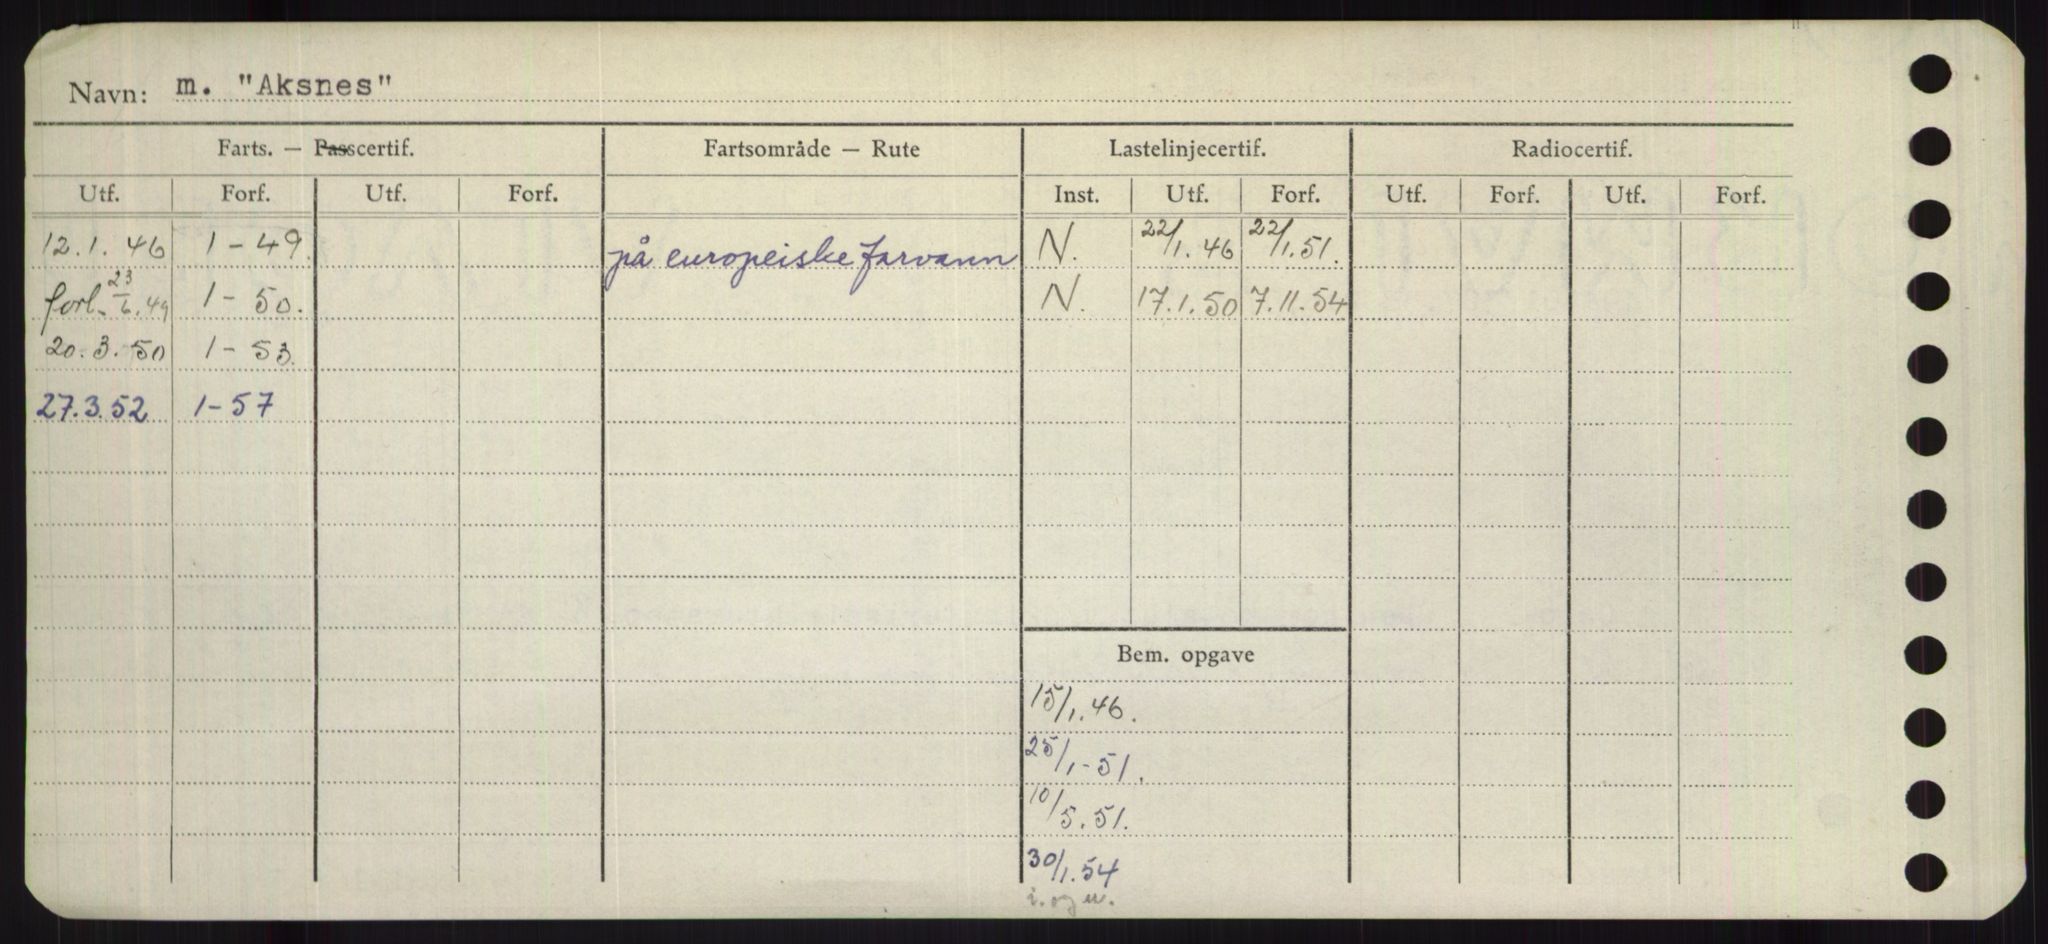 Navn: m. "Aksnes"
Farts. — Passcertif. Fartsområde — Rute Lastelinjecertif. Radiocertif.
Utf. Forf. Utf. Forf. Inst. Utf. Forf. Utf. Forf. Utf. Forf.
12.1.46 1-49. på europeiske farvann N. 22/1.46 22/1.51.
forl. 23/6.49 1-50. N. 17.1.50 7.11.54
20.3.50 1-53.
27.3.52 1-57
Bem. opgave
15/1.46.
25/1-51.
10/5.51.
30/1.54
i. og u.